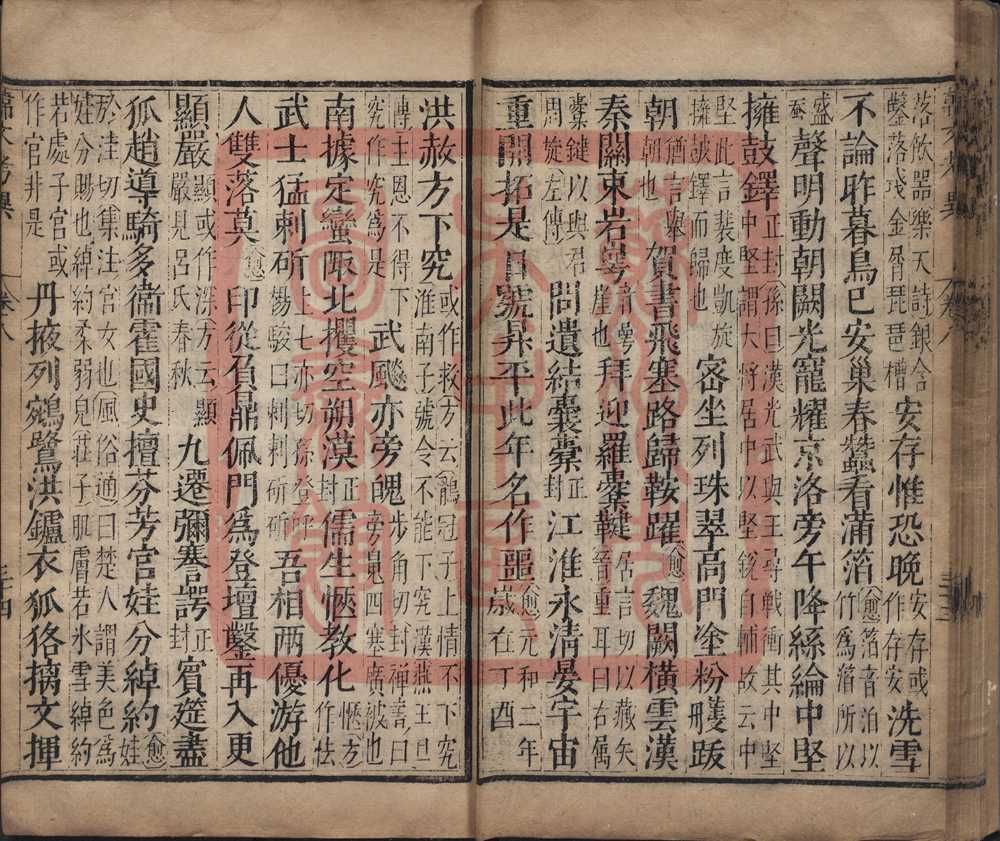 落飲器樂天詩銀含鑿落戔金屑琵琶槽 安存惟恐晚安存或作存安 洗雪
不論昨暮鳥已安巢春蠶看滿箔愈箔音泊以竹為箔所以
盛蚕 聲明動朝闕光寵耀京洛旁午降絲綸中堅
擁鼓鐸正封孫曰漢光武與王尋戰衝其中堅中堅謂大將居中以堅銳自輔故云中
堅此言裴度凱旋擁鼓鐸而歸也 密坐列珠翠高門塗粉雘跋
朝酒言舉朝也 賀書飛塞路歸鞍躍愈魏闕橫雲漢
秦關束岩崿崿崖也 拜迎羅櫜鞬居言切以藏矢晉重耳曰右屬
櫜鍵以與君周旋左傳 問遺結囊橐正封 江淮永清晏宇宙
重開拓是日號昇平此年名作噩愈元和二年歲在丁酉
洪赦方下究或作救方云鶡冠子上情不下究淮南子號令不能下究漢燕王旦
傳主恩不得下究作究為是 武飈亦旁魄步角切封禅書曰旁魄四塞廣被也
南據定蠻陬北攫空朔漠正封 儒生愜教化愜方作怯
武士猛刺斫上七亦切孫登呼楊駿曰刺刺斫斫 吾相兩優游他
人雙落莫愈 印從負鼎佩門爲登壇鑿再入更
顯嚴顯或作深方云顯嚴見呂氏春秋 九遷彌謇諤正封 賓筵盡
狐趙導騎多衞霍國史擅芬芳宮娃分綽約愈娃
於洼切集注宮女也風俗通曰楚人謂美色為娃分賜也綽約柔弱皃莊子肌膚若氷雪綽約
若處子宮或作官非是 丹掖列鵷鷺洪鑪衣狐狢摛文揮
韓文考異
卷八
三十四